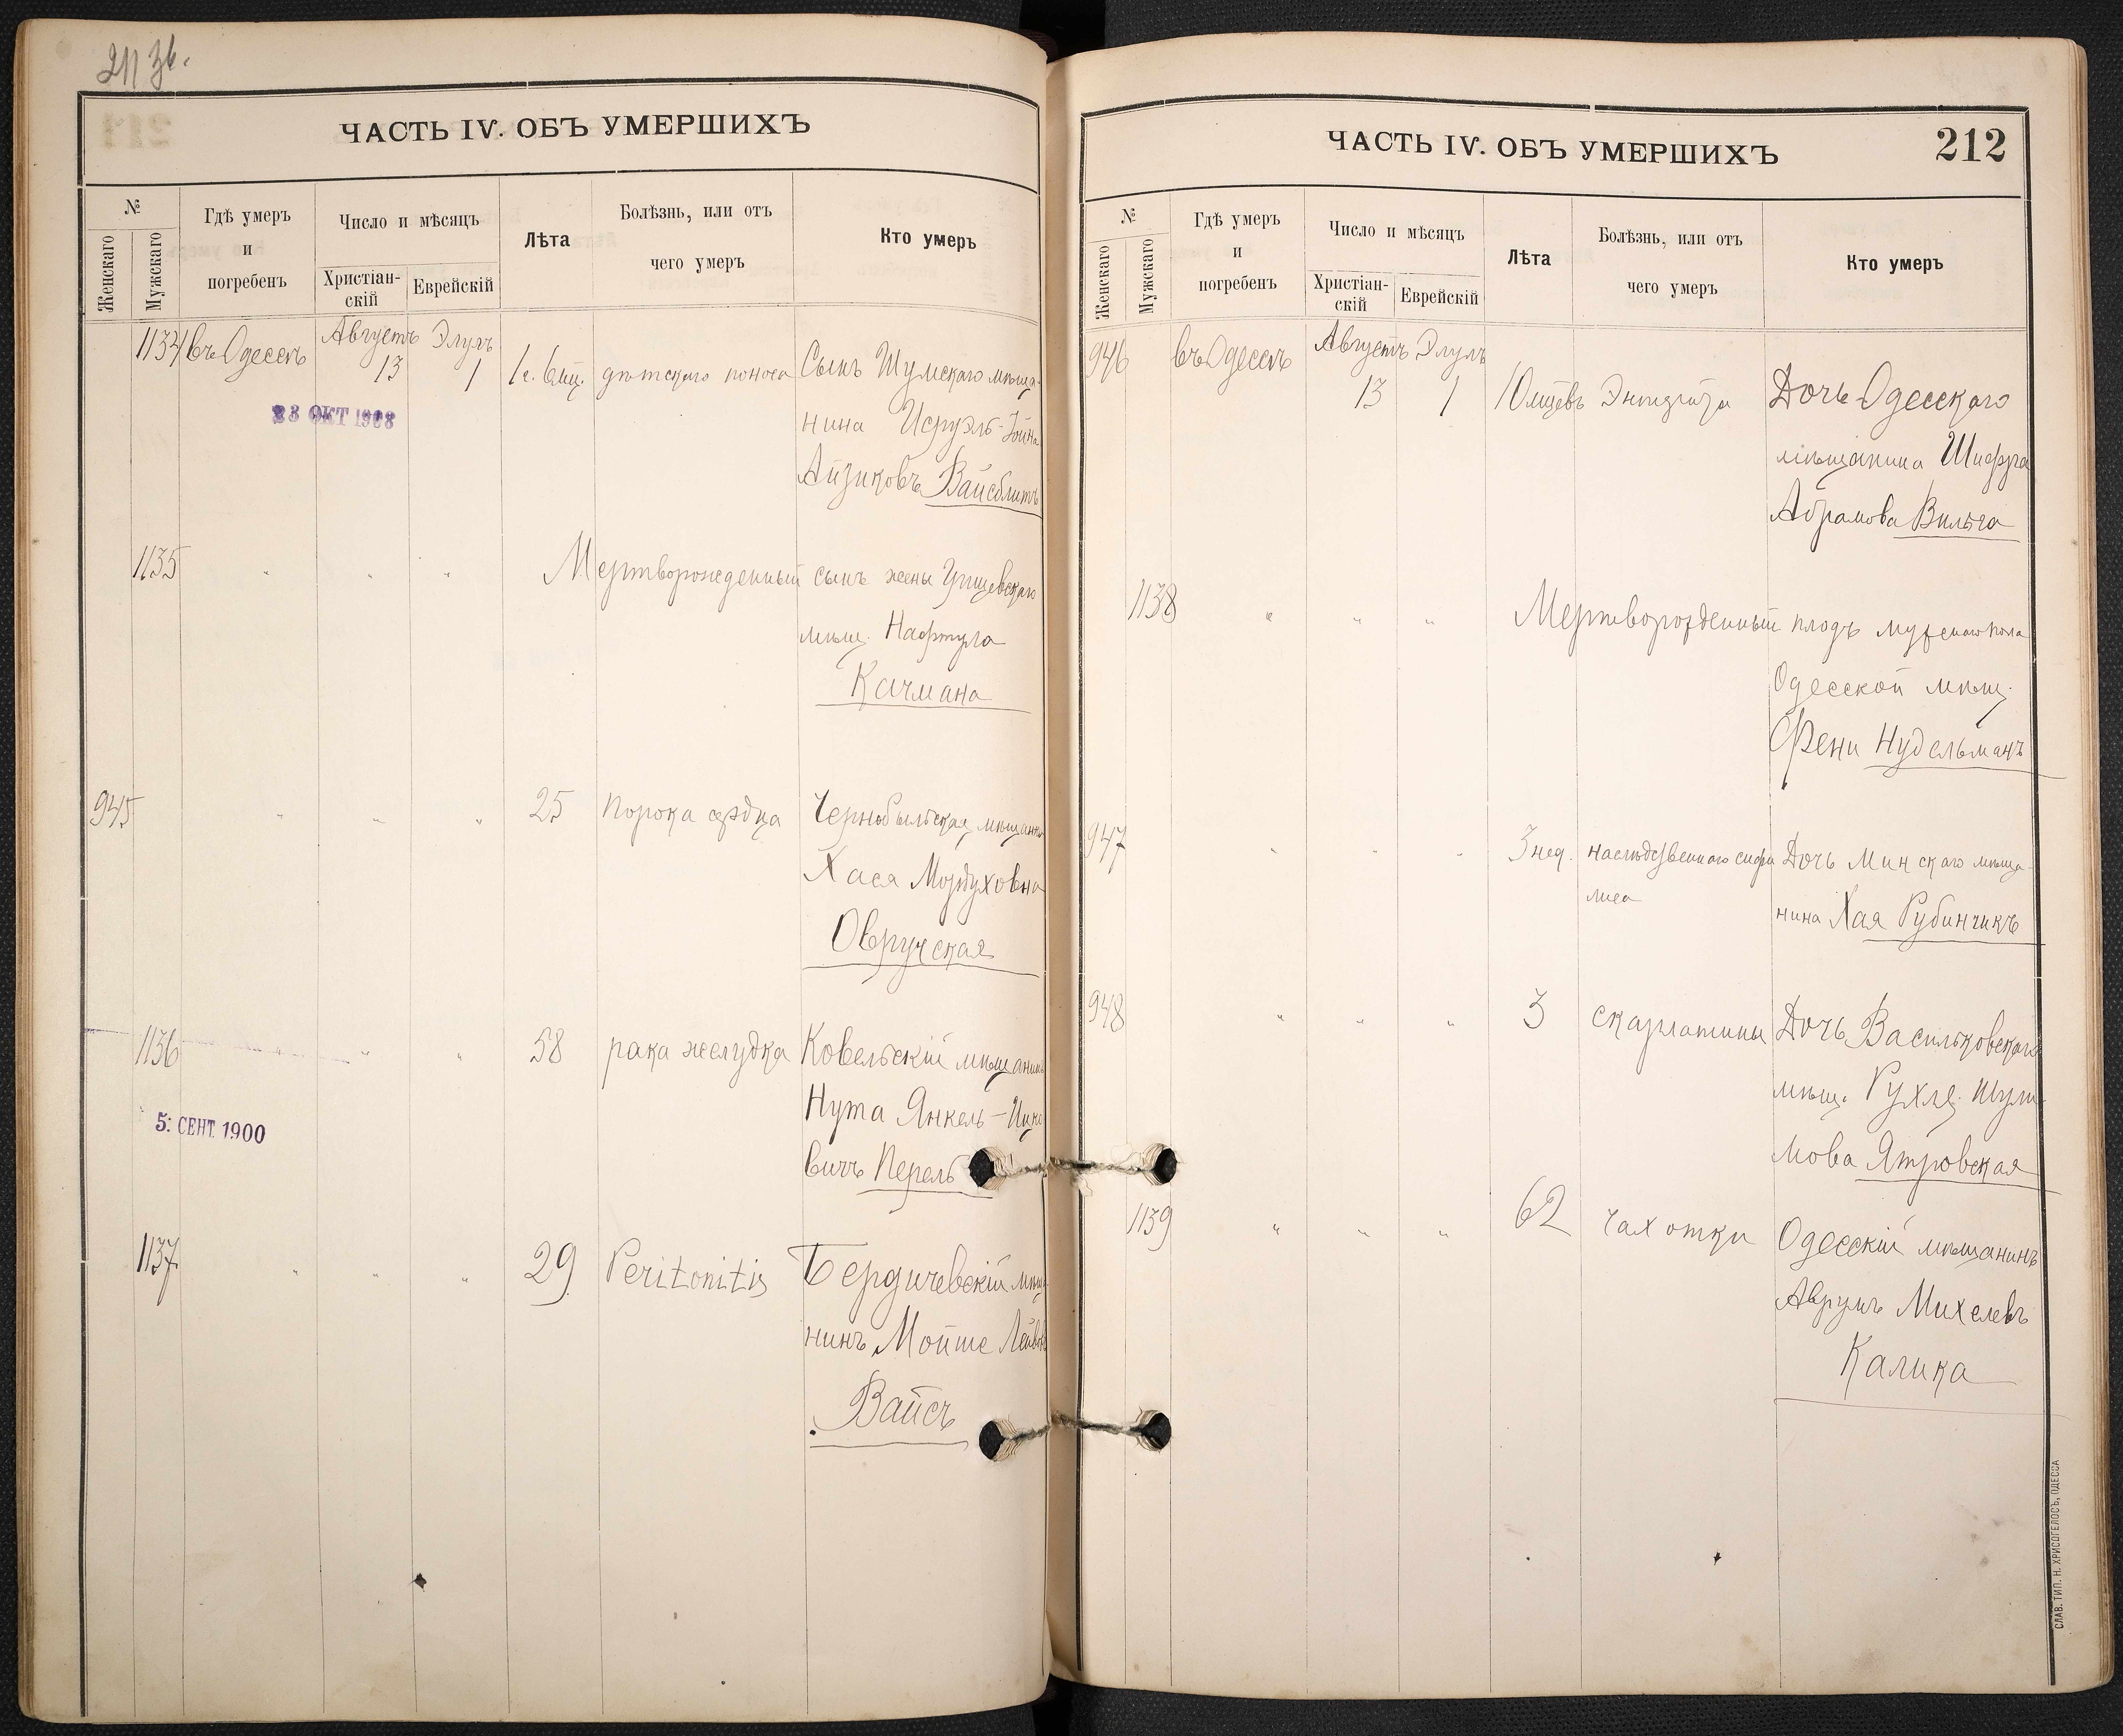 211 зв.
ЧАСТЬ IV. ОБЪ УМЕРШИХЪ
№
Женскаго
Мужскаго
Гдѣ умеръ
и
погребенъ
Число и мѣсяцъ
Христіан-
скій
Еврейскій
Лѣта
Болѣзнь, или отъ
чего умеръ
Кто умеръ
1134 въ Одессѣ Августъ Элулъ
13 1 1 г. 6 мц. дѣтскаго поноса Сынъ Шумскаго мѣща-
23 ОКТ 1908
нина Исруэль-Іойна
Айзиковъ Вайсблитъ
1135 " " " Мертворожденный сынъ жены
мѣщ. Нафтула
Качмана
945 " " " 25 порока сердца Чернобыльская мѣщанка
Хася Мордуховна
Овручская
1136 " " " 58 рака желудка Ковельскій мѣщанинъ
Нута Янкель-Ицко
вичъ Перель
5: СЕНТ. 1900
1137 " " " 29 Peritonitis Бердичевскій мѣща
нинъ Мойше Лейбовъ
Вайсъ
ЧАСТЬ IV. ОБЪ УМЕРШИХЪ
212
№
Женскаго
Мужскаго
Гдѣ умеръ
и
погребенъ
Число и мѣсяцъ
Христіан-
скій
Еврейскій
Лѣта
Болѣзнь, или отъ
чего умеръ
Кто умеръ
946 въ Одессѣ Августъ Элулъ
13 1 10 мцевъ Дочь Одесскаго
мѣщанина Шифра
Абрамова Вильга
1138 " " " Мертворожденный плодъ мужскаго пола
Одесской мѣщ.
Фени Нудельманъ
947 " " " 3 нед. наслѣдственнаго сифи Дочь Минскаго мѣща-
лиса
нина Хая Рубинчикъ
948 " " " 3 скарлатины Дочь Васильковскаго
мѣщ. Рухля Шули-
мова Ятровская
1139 " " " 62 чахотки Одесскій мѣщанинъ
Аврумъ Михелевъ
Калика
СЛАВ. ТИП. Н. ХРИСОГЕЛОСЪ, ОДЕССА